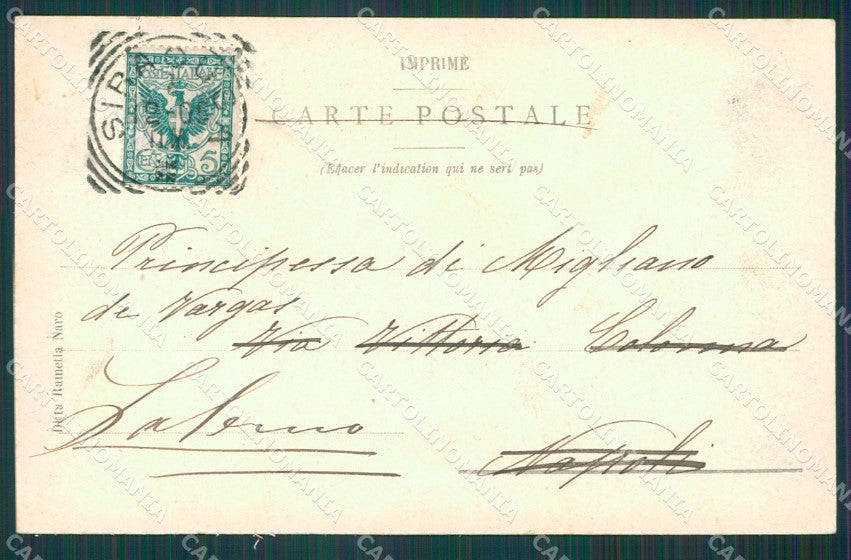 IMPRIMÉ
CARTE POSTALE
(Effacer l'indication qui ne sert pas)
POSTE ITALIANE
5
Principessa di Migliano
de Vargas
Via Vittoria Colonna
Salerno
Napoli
Ditta Ramella Naro
CARTOLINOMANIA